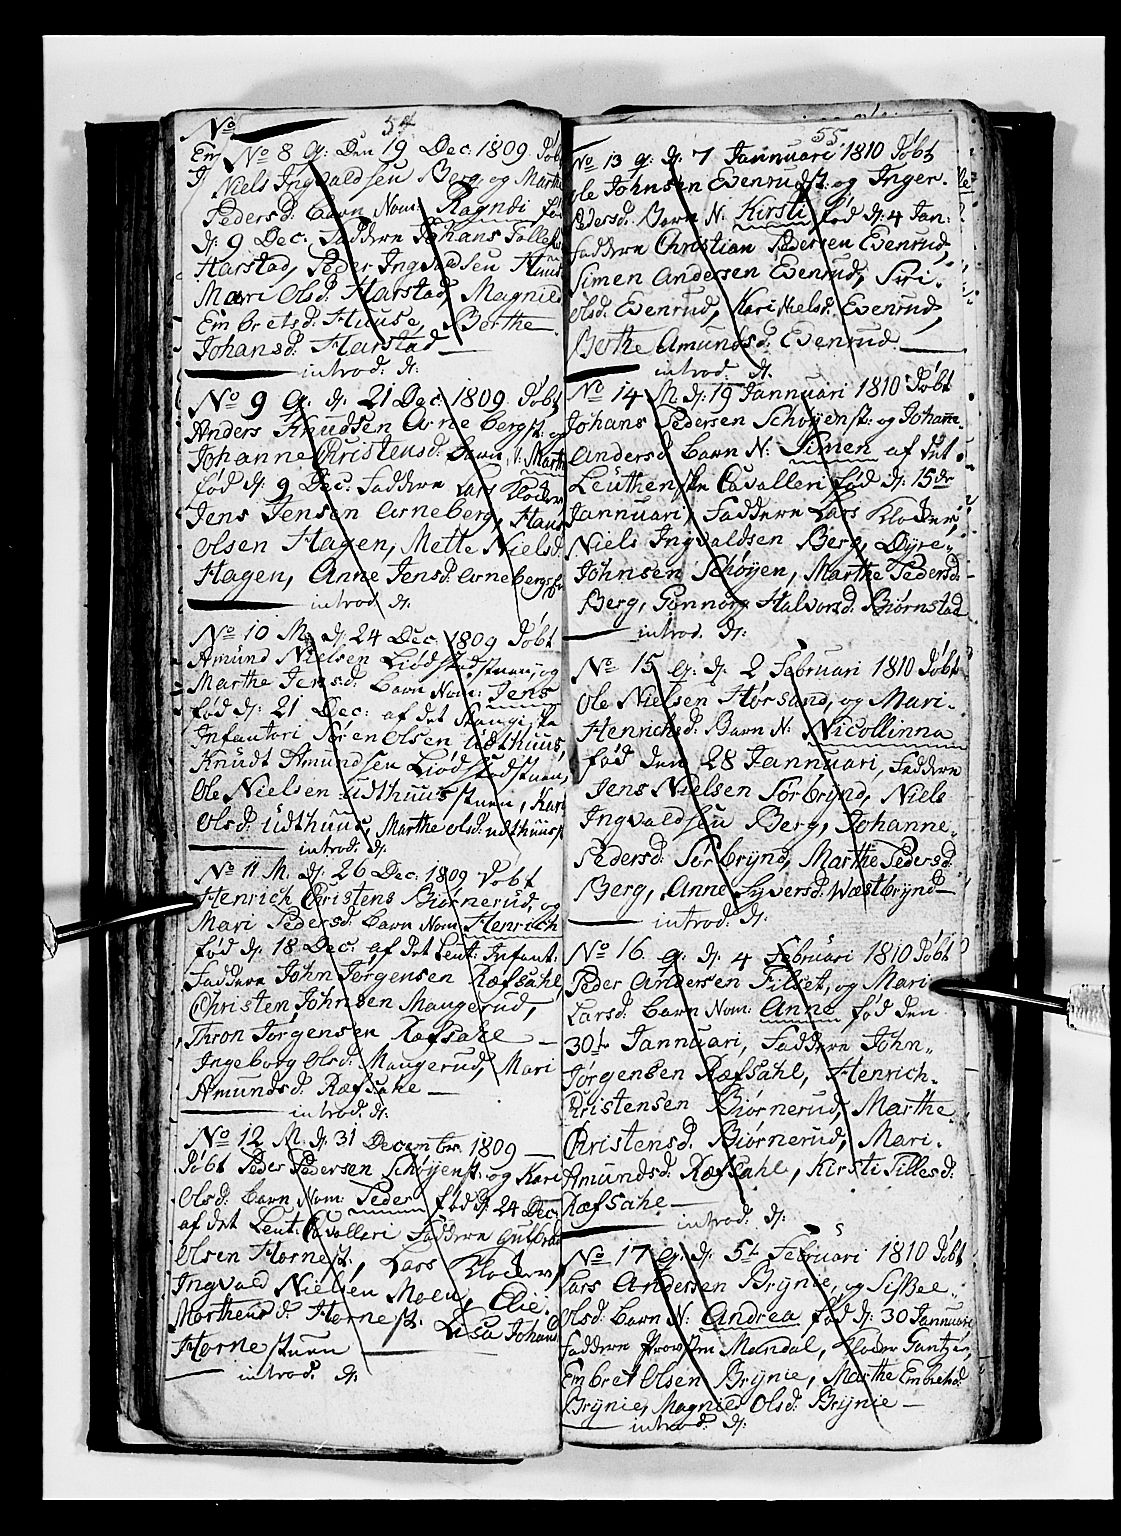 54
No 8 G. Den 19 Dec: 1809. Døbt
Niels Ingvaldsen Berg og Marthe
Pedersd: Barn Nom: Ragndi fød
dj: 9 Dec: Faddere Johans Tollefs:
Harstad, Peder Ingvaldsen Huus
Mari Olsd: Harstad, Magnild
Embretsd: Huuse, Berthe
Johansd: Harstad
introd: dj:
No 9 G. dj: 21 Dec: 1809. Døbt
Anders Knudsen Arnebergst: og
Johanne Christensd: Barn N: Marthe
fød dj: 9 Dec: Faddere Lars Kloder
Jens Jensen Arneberg, Hans
Olsen Hagen, Mette Nielsd:
Hagen, Anne Jensd: Arnebergst:
introd: dj:
No 10 M. dj: 24 Dec: 1809 Døbt
Amund Nielsen Liødstedstuen, og
Marthe Jensd: Barn Nom: Jens
fød dj: 21 Dec: af det Stangiske
Infanteri Søren Olsen Udthuus,
Knudt Amundsen Liødstedstuen,
Ole Nielsen Udthuusstuen, Kari
Olsd: Udthuus, Marthe Olsd: Udthuusst
introd: dj:
No 11 M. dj: 26 Dec: 1809 Døbt
Henrich Christens Biørnerud, og
Mari Pedersd: Barn Nom: Henrich
fød dj: 18 Dec: af det Leut: Infant:
Faddere John Jørgensen Ræfsahl,
Christen Johnsen Maugerud,
Thron Jørgensen Ræfsahl
Ingeborg Olsd: Maugerud, Mari
Amundsd: Ræfsahl
introd: dj:
No 12 M. dj: 31 Decembr: 1809
Døbt Peder Pedersen Schøyenst: og Kari
Olsd: Barn Nom: Peder fød dj: 24 Dec:
af det Leut: Cavalleri Faddere Gulbran
Olsen Hornest:, Lars Kloder,
Ingvald Nielsen Moen, Elie
Morthensd: Hornest: Lisa Johans
Hornestuen
introd: dj:
55
No 13 G. dj: 7 Jannuari 1810 Døbt
Ole Johnsen Evenrudst: og Inger
Pedersd: Barn N: Kirsti fød dj: 4 Jan:
Faddere Christian Pedersen Evenrud,
Simen Andersen Evenrud, Siri
Olsd: Evenrud, Kari Nielsd: Evenrud,
Berthe Amundsd: Evenrud
introd: dj:
No 14 M. dj: 19 Jannuari 1810 Døbt
Johans Pedersen Schøyenst: og Johanne
Andersd: Barn N: Simen af det
Leuthenske Cavalleri fød dj: 15de
Jannuari, Faddere Lars Kloder,
Niels Ingvaldsen Berg, Dyre
Johnsen Schøyen, Marthe Pedersd:
Berg, Gunnor Halvorsd: Biørnstad
introd: dj:
No 15 G. dj: 2 Februari 1810 Døbt
Ole Nielsen Hørsand, og Mari
Henrichsd: Barn N: Nicollinna
fød den 28 Jannuari, Faddere
Jens Nielsen Sørbrynd, Niels
Ingvaldsen Berg, Johanne
Pedersd: Sørbrynd, Marthe Pedersd:
Berg, Anne Syversd: Wæstbrynd
introd: dj:
No 16. G. dj: 4 Februari 1810 Døbt
Peder Andersen Filset, og Mari
Larsd: Barn Nom: Anne fød den
30t Jannuari, Faddere John
Jørgensen Ræfsahl, Henrich
Christensen Biørnerud, Marthe
Christensd: Biørnerud, Mari
Amundsd: Ræfsahl, Kirsti Tillesd:
Ræfsahl
introd: dj:
No 17 G. dj: 5t Februari 1810 Døbt
Lars Andersen Brynie, og Sißel
Olsd: Barn N: Andrea fød dj: 30 Januari
Faddere Mandal, Kloder Gantzer,
Embret Olsen Brynie, Marthe Embretsd:
Brynie, Magnild Olsd: Brynie
introd: dj: